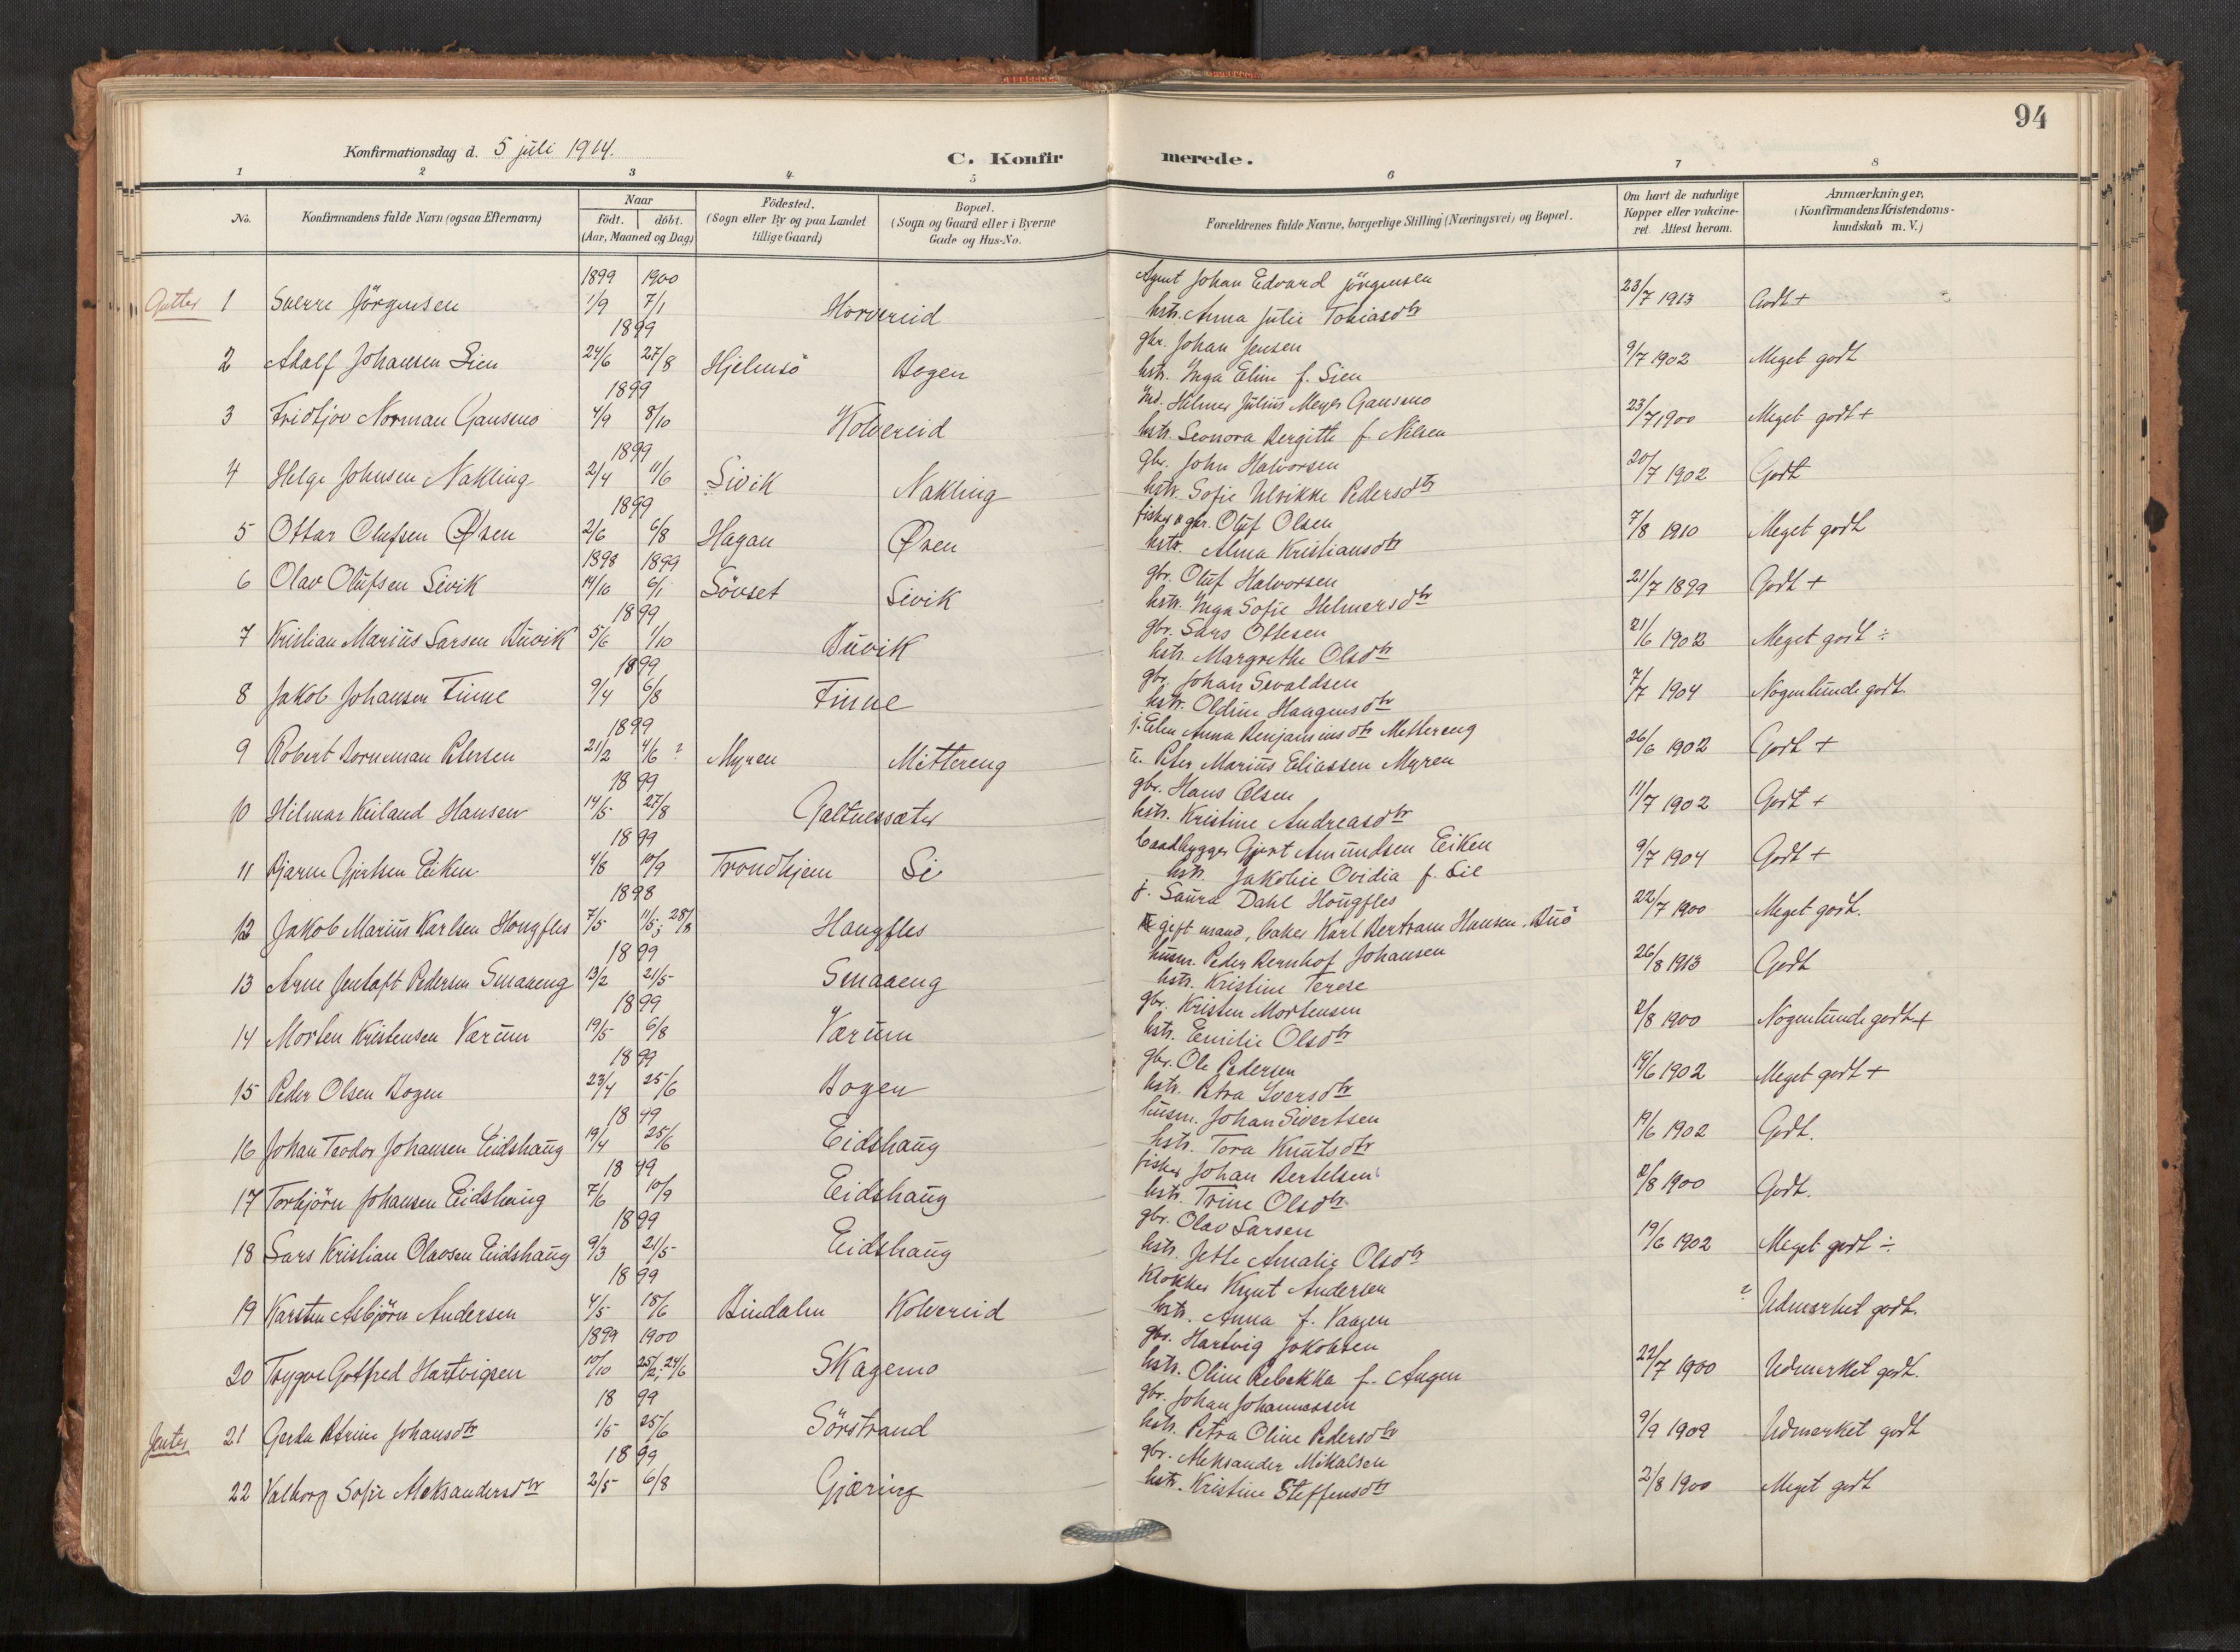 94
Konfirmationsdag d. 5 juli 1914.
C. Konfirmerede.
1 2 3 4 5 6 7 8
No. Konfirmandens fulde Navn (ogsaa Efternavn) Naar født. döbt. (Aar, Maaned og Dag) Födested. (Sogn eller By og paa Landet tillige Gaard) Bopæl. (Sogn og Gaard eller i Byerne Gade og Hus-No. Forældrenes fulde Navne, borgerlige Stilling (Næringsvei) og Bopæl. Om havt de naturlige Kopper eller vaccineret. Attest herom. Anmærkninger, (Konfirmandens Kristendomskundskab m. V.)
1899 1900 Agent Johan Edvard Jörgensen
Gutter 1 Sverre Jörgensen 1/9 7/1 Horvereid hstr. Anna Julie Tobiasdtr 23/7 1913 Godt +
1899 gbr. Johan Jensen
2 Adolf Johansen Lien 24/6 27/8 Hjelmsö Bogen hstr. Inga Eline f. Lien 9/7 1902 Meget godt
1899 Ind. Helmer Julius Meyer Gansmo
3 Fridtjov Norman Gansmo 4/9 8/10 Kolvereid hstr. Leonora Bergitte f. Nilsen 23/7 1900 Meget godt +
1899 gbr. John Halvorsen
4 Helge Johnsen Nakling 2/4 11/6 Sivik Nakling hstr. Sofie Ulrikke Pedersdtr 20/7 1902 Godt
1899 fisker o gbr. Oluf Olsen
5 Ottar Olufsen Øren 2/6 6/8 Hagan Øren hstr. Alma Kristiansdtr 7/8 1910 Meget godt
1898 1899 gbr. Oluf Halvorsen
6 Olav Olufsen Sivik 14/10 6/1 Sövset Sivik hstr. Inga Sofie Helmersdtr 21/7 1899 Godt +
1899 gbr. Lars Ottesen
7 Kristian Marius Larsen Buvik 5/6 1/10 Buvik hstr. Margrethe Olsdtr 21/6 1902 Meget godt ÷
1899 gbr. Johan Sivaldsen
8 Jakob Johansen Finne 9/4 6/8 Finne hstr. Oldine Haagensdtr 7/7 1904 Nogenlunde godt.
1899 j. Elen Anna Benjaminsdtr Mittereng
9 Robert Borneman Petersen 21/2 4/6 ? Myren Mittereng u. Peter Marius Eliassen Myren 26/6 1902 Godt +
1899 gbr. Hans Olsen
10 Hilmar Keiland Hansen 14/5 27/8 Galtnessæter hstr. Kristine Andreasdtr 11/7 1902 Godt +
1899 baadbygger Gjert Amundsen Eiken
11 Bjarne Gjertsen Eiken 4/8 10/9 Trondhjem Li hstr. Jakobie Ovidia f. Lie 9/7 1904 Godt +
1898 j. Laura Dahl Hougfles
12 Jakob Marius Karlsen Hougfles 7/5 11/5; 28/8 Haugfles gift mand, baker Karl Bertram Hansen. Buö 22/7 1900 Meget godt.
1899 husm. Peder Bernhof Johansen
13 Arne Jentoft Pedersen Smaaeng 13/2 21/5 Smaaeng hstr. Kristine Terese 26/8 1913 Godt
1899 gbr. Kristen Mortensen
14 Morten Kristensen Værum 19/5 6/8 Værum hstr. Emilie Olsdtr 2/8 1900 Nogenlunde godt +
1899 gbr. Ole Pedersen
15 Peder Olsen Bogen 23/4 25/6 Bogen hstr. Petra Iversdtr 19/6 1902 Meget godt +
1899 husm. Johan Sivertsen
16 Johan Teodor Johansen Eidshaug 19/4 25/6 Eidshaug hstr. Tora Knutsdtr 19/6 1902 Godt.
1899 fisker Johan Bertelsen
17 Torbjörn Johansen Eidshaug 7/6 10/9 Eidshaug hstr. Trine Olsdtr 2/8 1900 Godt.
1899 gbr. Olav Larsen
18 Lars Kristian Olavsen Eidshaug 9/3 21/5 Eidshaug hstr. Jette Amalie Olsdtr 19/6 1902 Meget godt ÷
1899 Klokker Knut Andersen
19 Karsten Asbjörn Andersen 4/5 18/6 Bindalen Kolvereid hstr. Anna f. Vaagen ? Udmerket godt.
1899 1900 gbr. Hartvig Jakobsen
20 Trygve Gotfred Hartvigsen 10/10 25/2; 24/6 Skagemo hstr. Oline Rebekka f. Augen 22/7 1900 Udmerket godt.
1899 gbr. Johan Johannessen
Jenter 21 Gerda Petrine Johansdtr 1/5 25/6 Sörstrand hstr. Petra Oline Pedersdtr 9/9 1902 Udmerket godt
1899 gbr. Aleksander Mikalsen
22 Valborg Sofie Aleksandersdtr 2/5 6/8 Gjæring hstr. Kristine Steffensdtr 2/8 1900 Meget godt